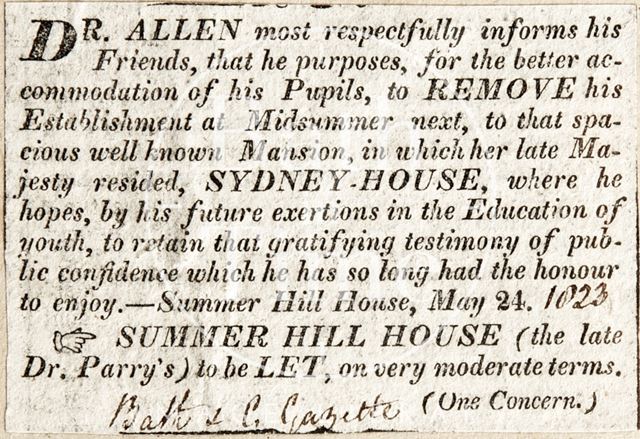 DR. ALLEN most respectfully informs his
Friends, that he purposes, for the better ac-
commodation of his Pupils, to REMOVE his
Establishment at Midsummer next, to that spa-
cious well known Mansion, in which her late Ma-
jesty resided, SYDNEY-HOUSE, where he
hopes, by his future exertions in the Education of
youth, to retain that gratifying testimony of pub-
lic confidence which he has so long had the honour
to enjoy.—Summer Hill House, May 24. 1823
☞ SUMMER HILL HOUSE (the late
Dr. Parry's) to be LET, on very moderate terms.
Bath & C. Gazette (One Concern.)